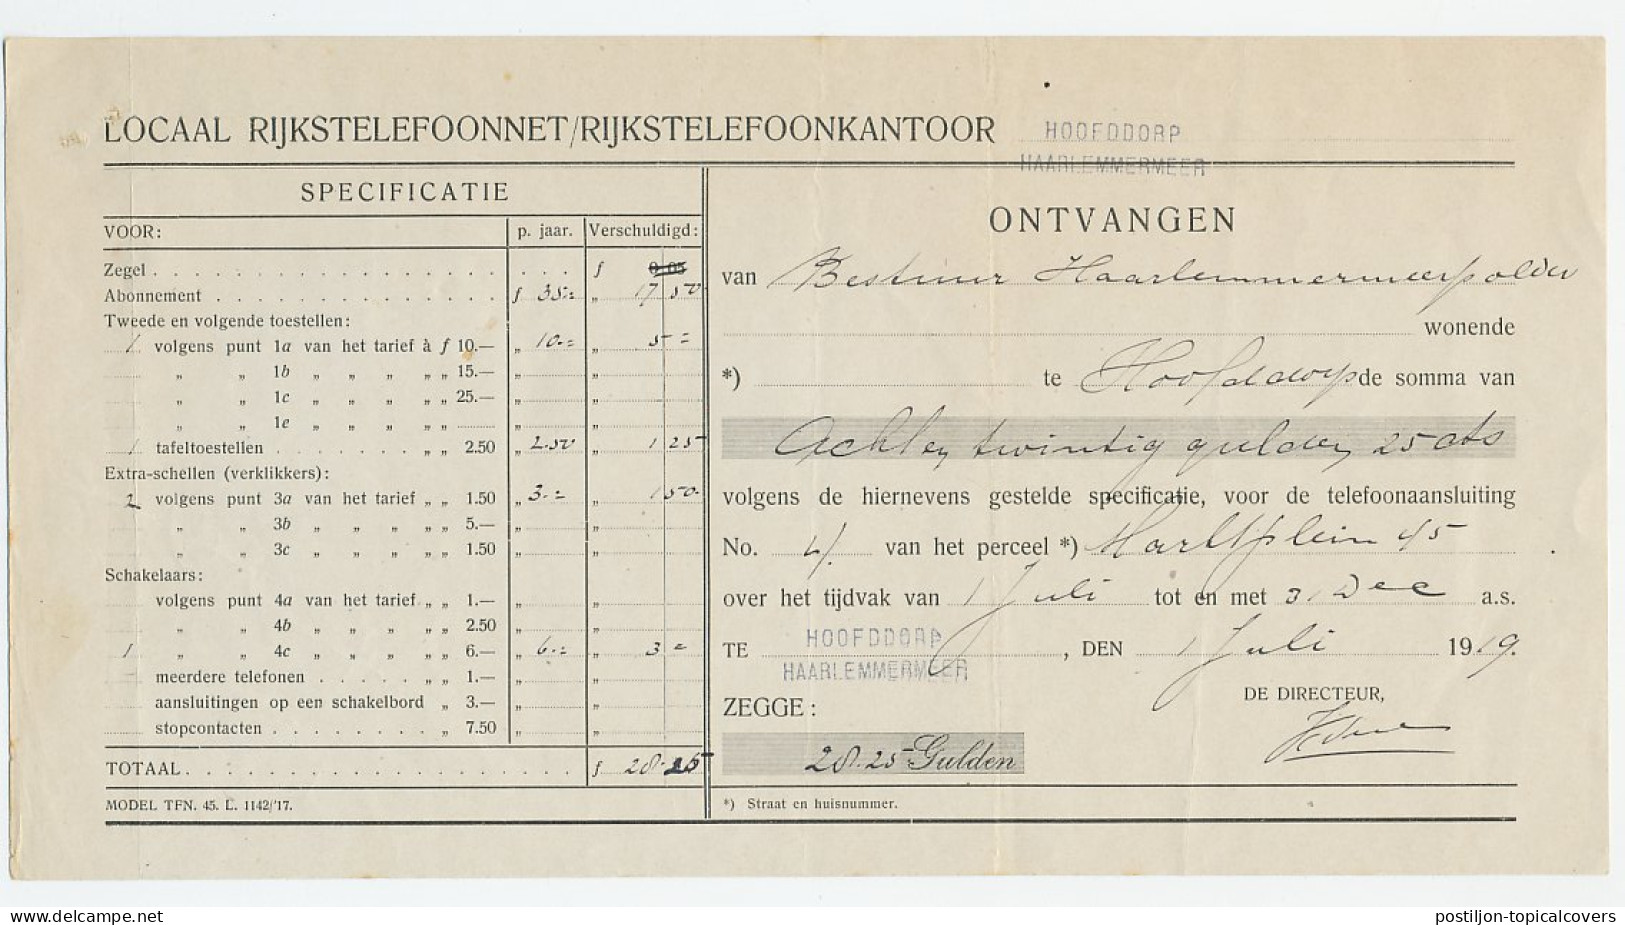 LOCAAL RIJKSTELEFOONNET/RIJKSTELEFOONKANTOOR HOOFDDORP
HAARLEMMERMEER
SPECIFICATIE
VOOR: p. jaar. Verschuldigd:
Zegel f 0 05
Abonnement f 35.= „ 17 50
Tweede en volgende toestellen:
1 volgens punt 1a van het tarief à f 10.— „ 10.= „ 5 =
„ „ 1b „ „ „ „ „ 15.— „ „
„ „ 1c „ „ „ „ „ 25.— „ „
„ „ 1e „ „ „ „ „ „ „
1 tafeltoestellen „ „ 2.50 „ 2.50 „ 1 25
Extra-schellen (verklikkers):
2 volgens punt 3a van het tarief „ „ 1.50 „ 3.= „ 1 50.
„ „ 3b „ „ „ „ „ 5.— „ „
„ „ 3c „ „ „ „ „ 1.50 „ „
Schakelaars:
volgens punt 4a van het tarief „ „ 1.— „ „
„ „ 4b „ „ „ „ „ 2.50 „ „
1 „ „ 4c „ „ „ „ „ 6.— „ 6.= „ 3 =
meerdere telefonen „ „ 1.— „ „
aansluitingen op een schakelbord „ 3.— „ „
stopcontacten „ 7.50 „ „
TOTAAL f 28.25
MODEL TFN. 45. L. 1142/'17.
ONTVANGEN
van Bestuur Haarlemmermeerpolder
wonende
*) te Hoofddorp de somma van
Achten twintig gulden 25 cts
volgens de hiernevens gestelde specificatie, voor de telefoonaansluiting
No. 4. van het perceel *) Marktplein 45
over het tijdvak van 1 Juli tot en met 31 Dec a.s.
TE HOOFDDORP HAARLEMMERMEER, DEN 1 Juli 1919.
DE DIRECTEUR,
ZEGGE:
28.25 Gulden
*) Straat en huisnummer.
www.delcampe.net
postiljon-topicalcovers